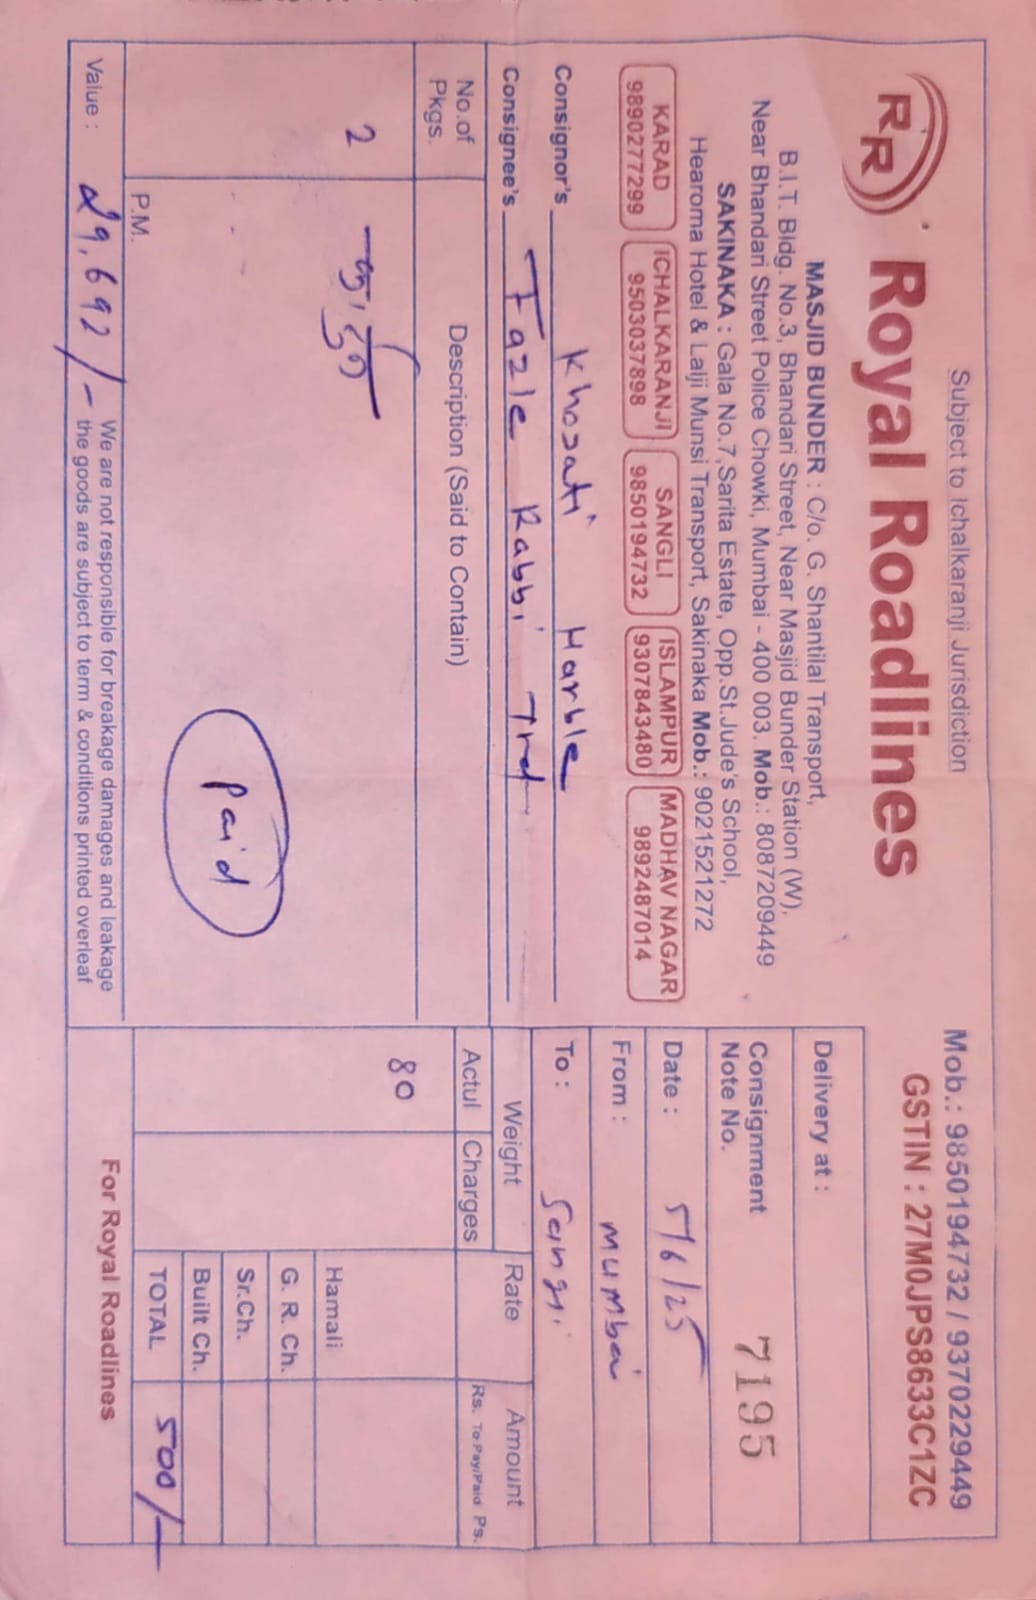 Subject to Ichalkaranji Jurisdiction
Mob.: 9850194732 / 9370229449
GSTIN : 27M0JPS8633C1ZC
RR Royal Roadlines
MASJID BUNDER : C/o. G. Shantilal Transport,
B.I.T. Bldg. No.3, Bhandari Street, Near Masjid Bunder Station (W),
Near Bhandari Street Police Chowki, Mumbai - 400 003. Mob.: 8087209449
SAKINAKA : Gala No.7,Sarita Estate, Opp.St.Jude's School,
Hearoma Hotel & Lalji Munsi Transport, Sakinaka Mob.: 9021521272
KARAD
9890277299
ICHALKARANJI
9503037898
SANGLI
9850194732
ISLAMPUR
9307843480
MADHAV NAGAR
9892487014
Delivery at :
Consignment
Note No. 7195
Date : 5/6/25
From : Mumbai
To : Sangli
Consignor's Khosati Marble
Consignee's Fazle Rabbi Trd
No.of
Pkgs.
Description (Said to Contain)
Weight
Actul
Charges
Rate
Amount
Rs. To Pay/Paid Ps.
2
80
Hamali
G. R. Ch.
Sr.Ch.
Built Ch.
TOTAL 500/-
Paid
P.M.
Value : 29,692/-
We are not responsible for breakage damages and leakage
the goods are subject to term & conditions printed overleaf
For Royal Roadlines